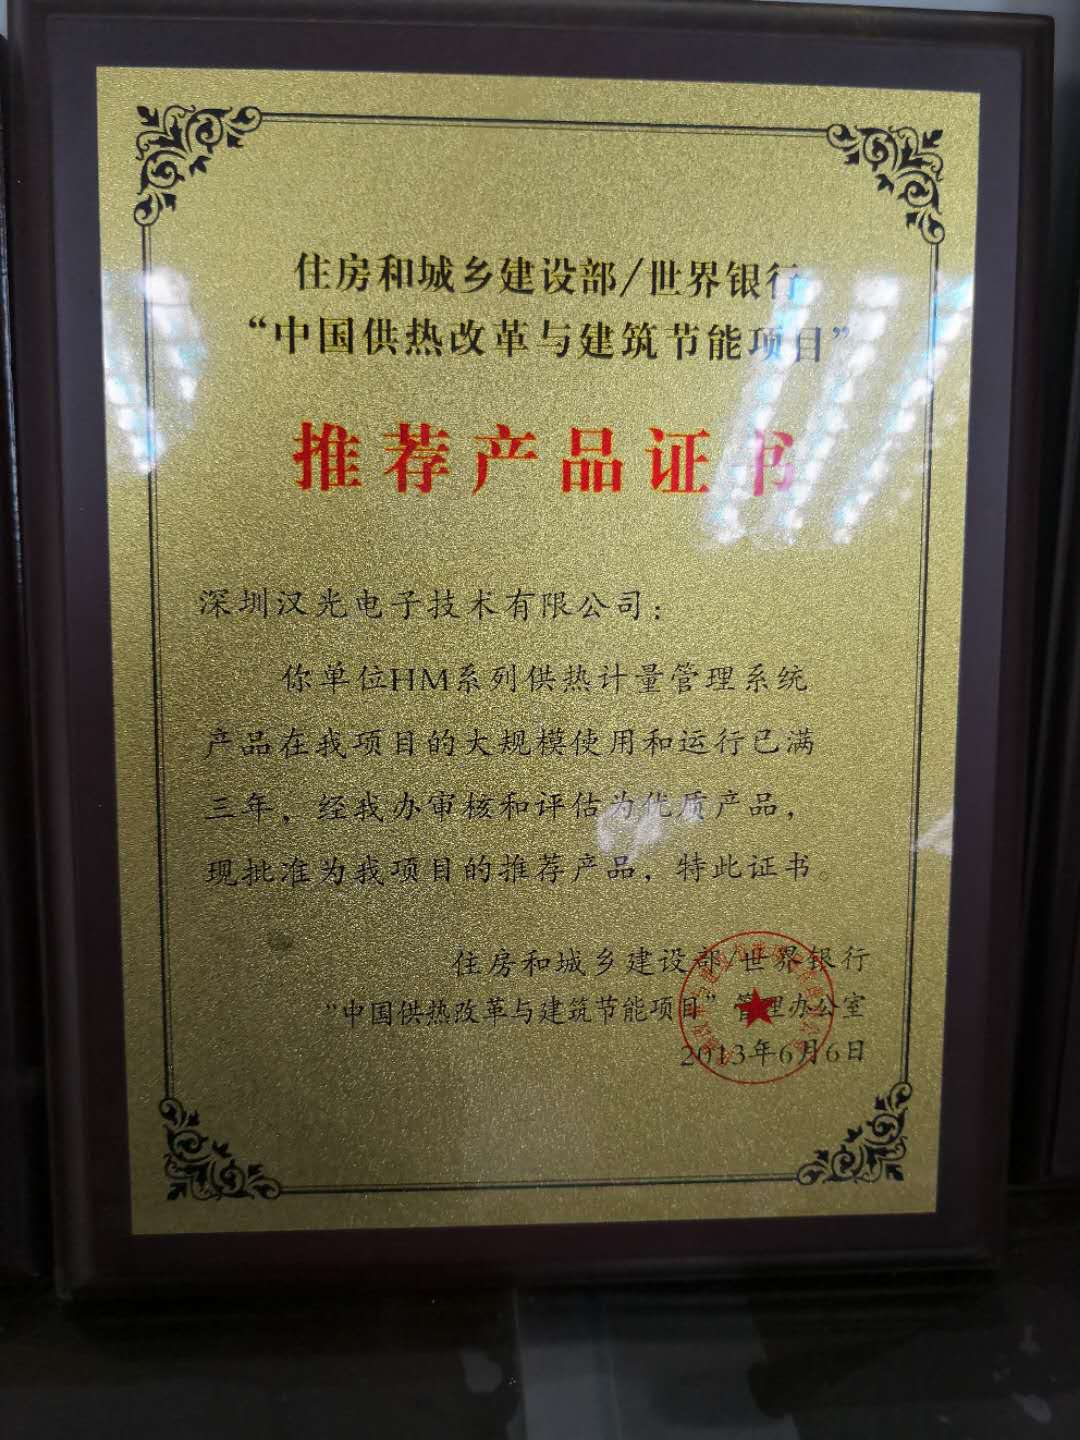 住房和城乡建设部/世界银行
“中国供热改革与建筑节能项目”
推荐产品证书
深圳汉光电子技术有限公司：
你单位HM系列供热计量管理系统
产品在我项目的大规模使用和运行已满
三年，经我办审核和评估为优质产品，
现批准为我项目的推荐产品，特此证书。
住房和城乡建设部/世界银行
”中国供热改革与建筑节能项目”管理办公室
2013年6月6日